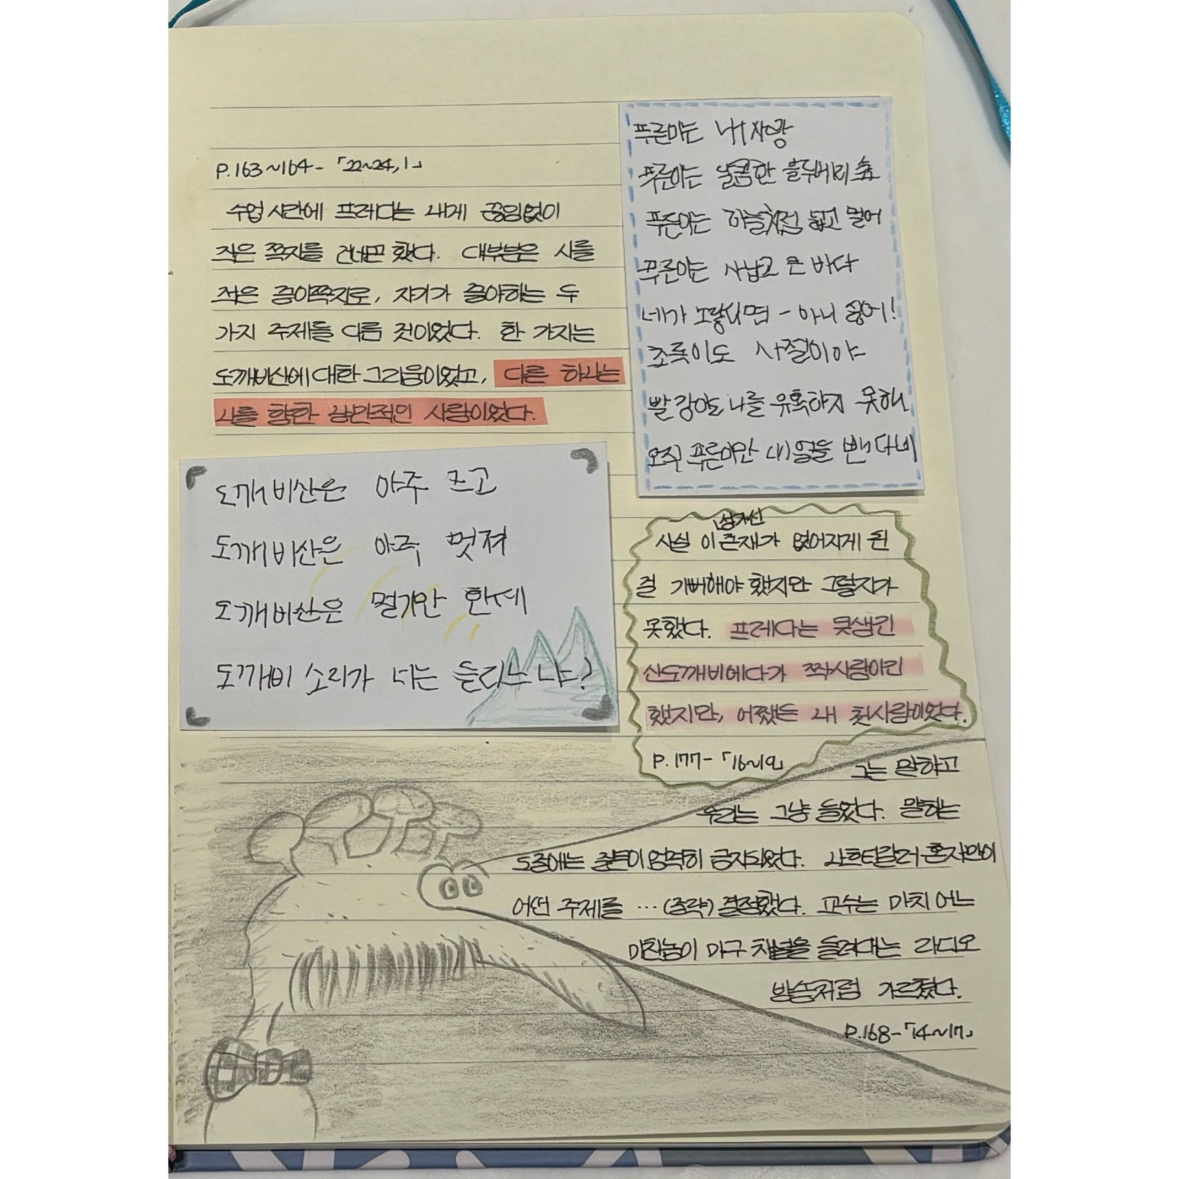 P.163~164-「22~24, 1」
수업 시간에 프레다는 내게 끊임없이
작은 쪽지를 건네곤 했다. 대부분은 시를
적은 종이쪽지로, 자기가 좋아하는 두
가지 주제를 다룬 것이었다. 한 가지는
도깨비산에 대한 그리움이었고, 다른 하나는
나를 향한 낭만적인 사랑이었다.
푸른이는 내 사랑
푸른이는 달콤한 블루베리 숲
푸른이는 하늘처럼 높고 멀어
푸른이는 사납고 큰 바다
네가 노랗다면 - 아니 싫어!
초록이도 사절이야
빨강이도 나를 유혹하지 못해
오직 푸른이만 내 얼을 뺀다네
도깨비산은 아주 크고
도깨비산은 아주 멋져
도깨비산은 멀기만 한데
도깨비 소리가 너는 들리느냐?
사실 이 성가신 존재가 없어지게 된
걸 기뻐해야 했지만 그럴지가
못했다. 프레다는 못생긴
산도깨비에다가 짝사랑이긴
했지만, 어쨌든 내 첫사랑이었다.
P.177-「16~19」
그는 말하고
우리는 그냥 들었다. 말하는
도중에는 질문이 엄격히 금지되었다. 나흐티갈러 혼자만이
어떤 주제를 … (중략) 결정했다. 교수는 마치 어느
미친놈이 마구 채널을 돌려대는 라디오
방송처럼 가르쳤다.
P.168-「14~17」